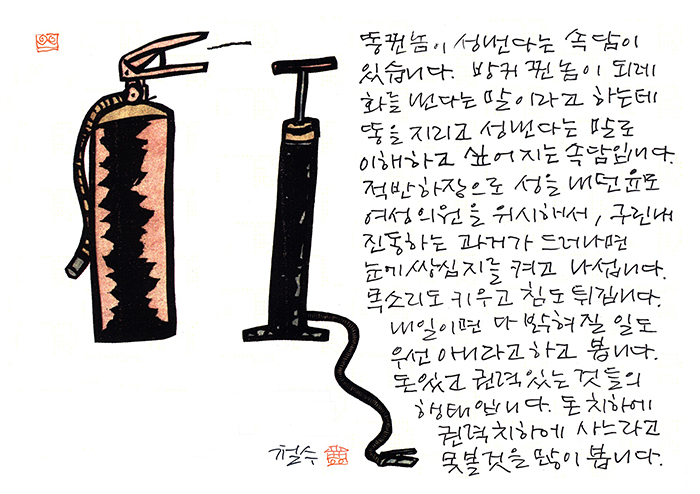 똥뀐놈이 성낸다는 속담이
있습니다. 방귀 뀐 놈이 되레
화를 낸다는 말이라고 하는데
똥을 지리고 성낸다는 말로
이해하고 싶어지는 속담입니다.
적반하장으로 성을 내던 윤모
여성의원을 위시해서, 구린내
진동하는 과거가 드러나면
눈에 쌍심지를 켜고 나섭니다.
목소리도 키우고 침도 튀깁니다.
내일이면 다 밝혀질 일도
우선 아니라고 하고 봅니다.
돈있고 권력있는 것들의
행태입니다. 돈 치하에
권력치하에 사느라고
못볼것을 많이 봅니다.
철수